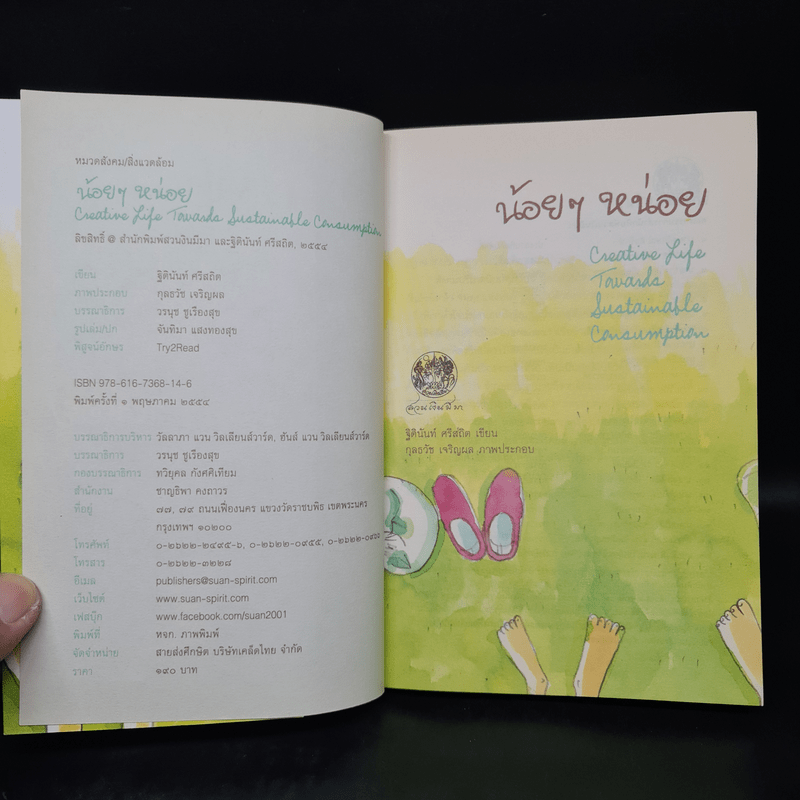 หมวดสังคม/สิ่งแวดล้อม
น้อยๆ หน่อย
Creative Life Towards Sustainable Consumption
ลิขสิทธิ์ @ สำนักพิมพ์สวนเงินมีมา และฐิตินันท์ ศรีสถิต, ๒๕๕๔
เขียน ฐิตินันท์ ศรีสถิต
ภาพประกอบ กุลธวัช เจริญผล
บรรณาธิการ วรนุช ชูเรืองสุข
รูปเล่ม/ปก จันทิมา แสงทองสุข
พิสูจน์อักษร Try2Read
ISBN 978-616-7368-14-6
พิมพ์ครั้งที่ ๑ พฤษภาคม ๒๕๕๔
บรรณาธิการบริหาร วัลลาภา แวน วิลเลียนส์วาร์ด, ฮันส์ แวน วิลเลียนส์วาร์ด
บรรณาธิการ วรนุช ชูเรืองสุข
กองบรรณาธิการ ทวิยุคล กังศศิเทียม
สำนักงาน ชาญธิพา คงถาวร
ที่อยู่ ๗๗, ๗๙ ถนนเฟื่องนคร แขวงวัดราชบพิธ เขตพระนคร
กรุงเทพฯ ๑๐๒๐๐
โทรศัพท์ ๐-๒๖๒๒-๒๔๙๕-๖, ๐-๒๖๒๒-๐๙๕๕, ๐-๒๖๒๒-๐๙๖๖
โทรสาร ๐-๒๖๒๒-๓๒๒๘
อีเมล publishers@suan-spirit.com
เว็บไซต์ www.suan-spirit.com
เฟสบุ๊ก www.facebook.com/suan2001
พิมพ์ที่ หจก. ภาพพิมพ์
จัดจำหน่าย สายส่งศึกษิต บริษัทเคล็ดไทย จำกัด
ราคา ๑๙๐ บาท
น้อยๆ หน่อย
Creative Life
Towards
Sustainable
Consumption
สวนเงินมีมา
ฐิตินันท์ ศรีสถิต เขียน
กุลธวัช เจริญผล ภาพประกอบ